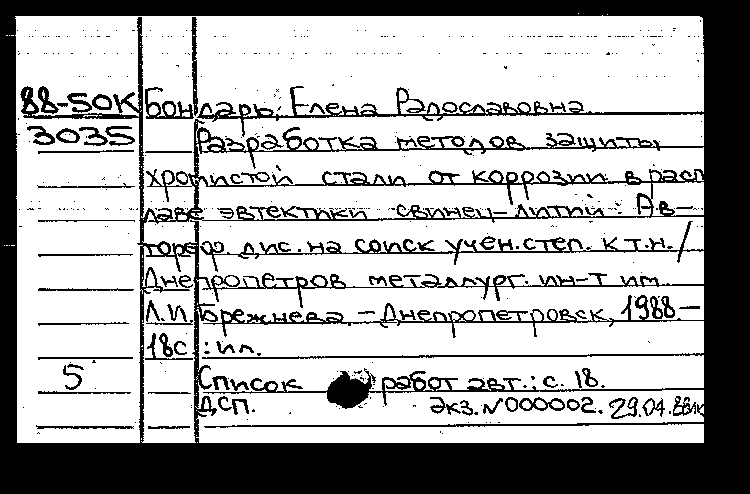 88-50К Бондарь, Елена Радославовна
3035 Разработка методов защиты
хромистой стали от коррозии в расп
лаве эвтектики свинец-литий: Ав-
тореф. дис. на соиск учен. степ. к т.н./
Днепропетров металлург. ин-т им
Л.И. Брежнева. – Днепропетровск, 1988. –
18с. : ил.
5 Список работ авт.: с. 18.
ДСП. Экз. N000002. 29.04.88